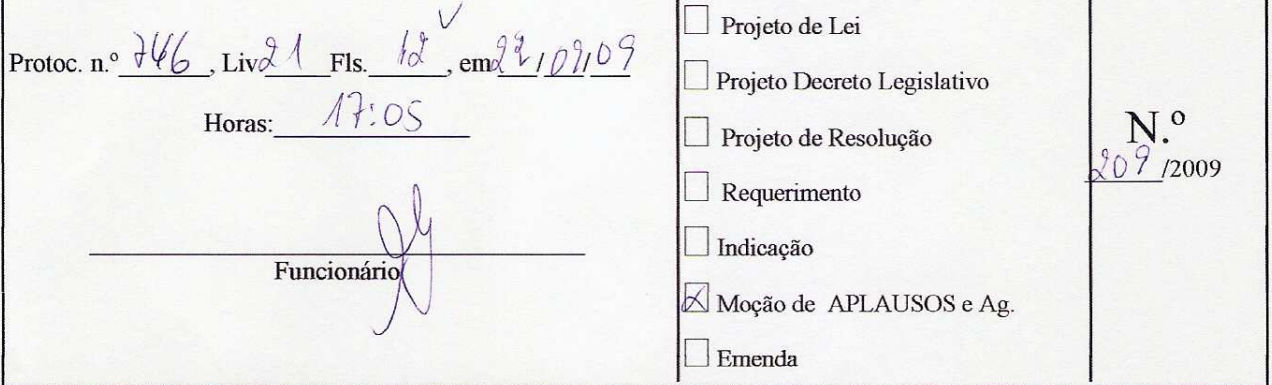 Protoc. n.º 746, Liv 21 Fls. 12, em 22/09/09
Horas: 17:05
Funcionário
Projeto de Lei
Projeto Decreto Legislativo
Projeto de Resolução
Requerimento
Indicação
Moção de APLAUSOS e Ag.
Emenda
N.º
209/2009